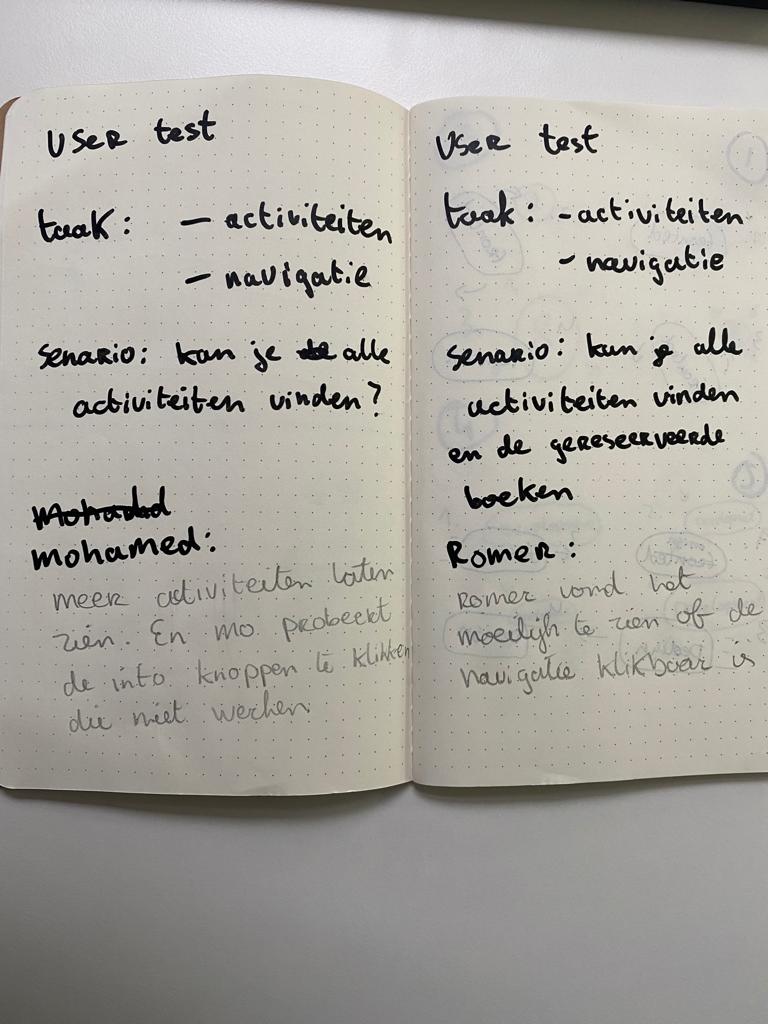 User test
taak: - activiteiten
- navigatie
senario: kan je alle
activiteiten vinden?
mohamed:
meer activiteiten laten
zien. En mo probeert
de info knoppen te klikken
die niet werken
User test
taak: - activiteiten
- navigatie
senario: kan je alle
activiteiten vinden
en de gereseerveerde
boeken
Romer:
Romer vond het
moeilijh te zien of de
navigatie klikbaar is